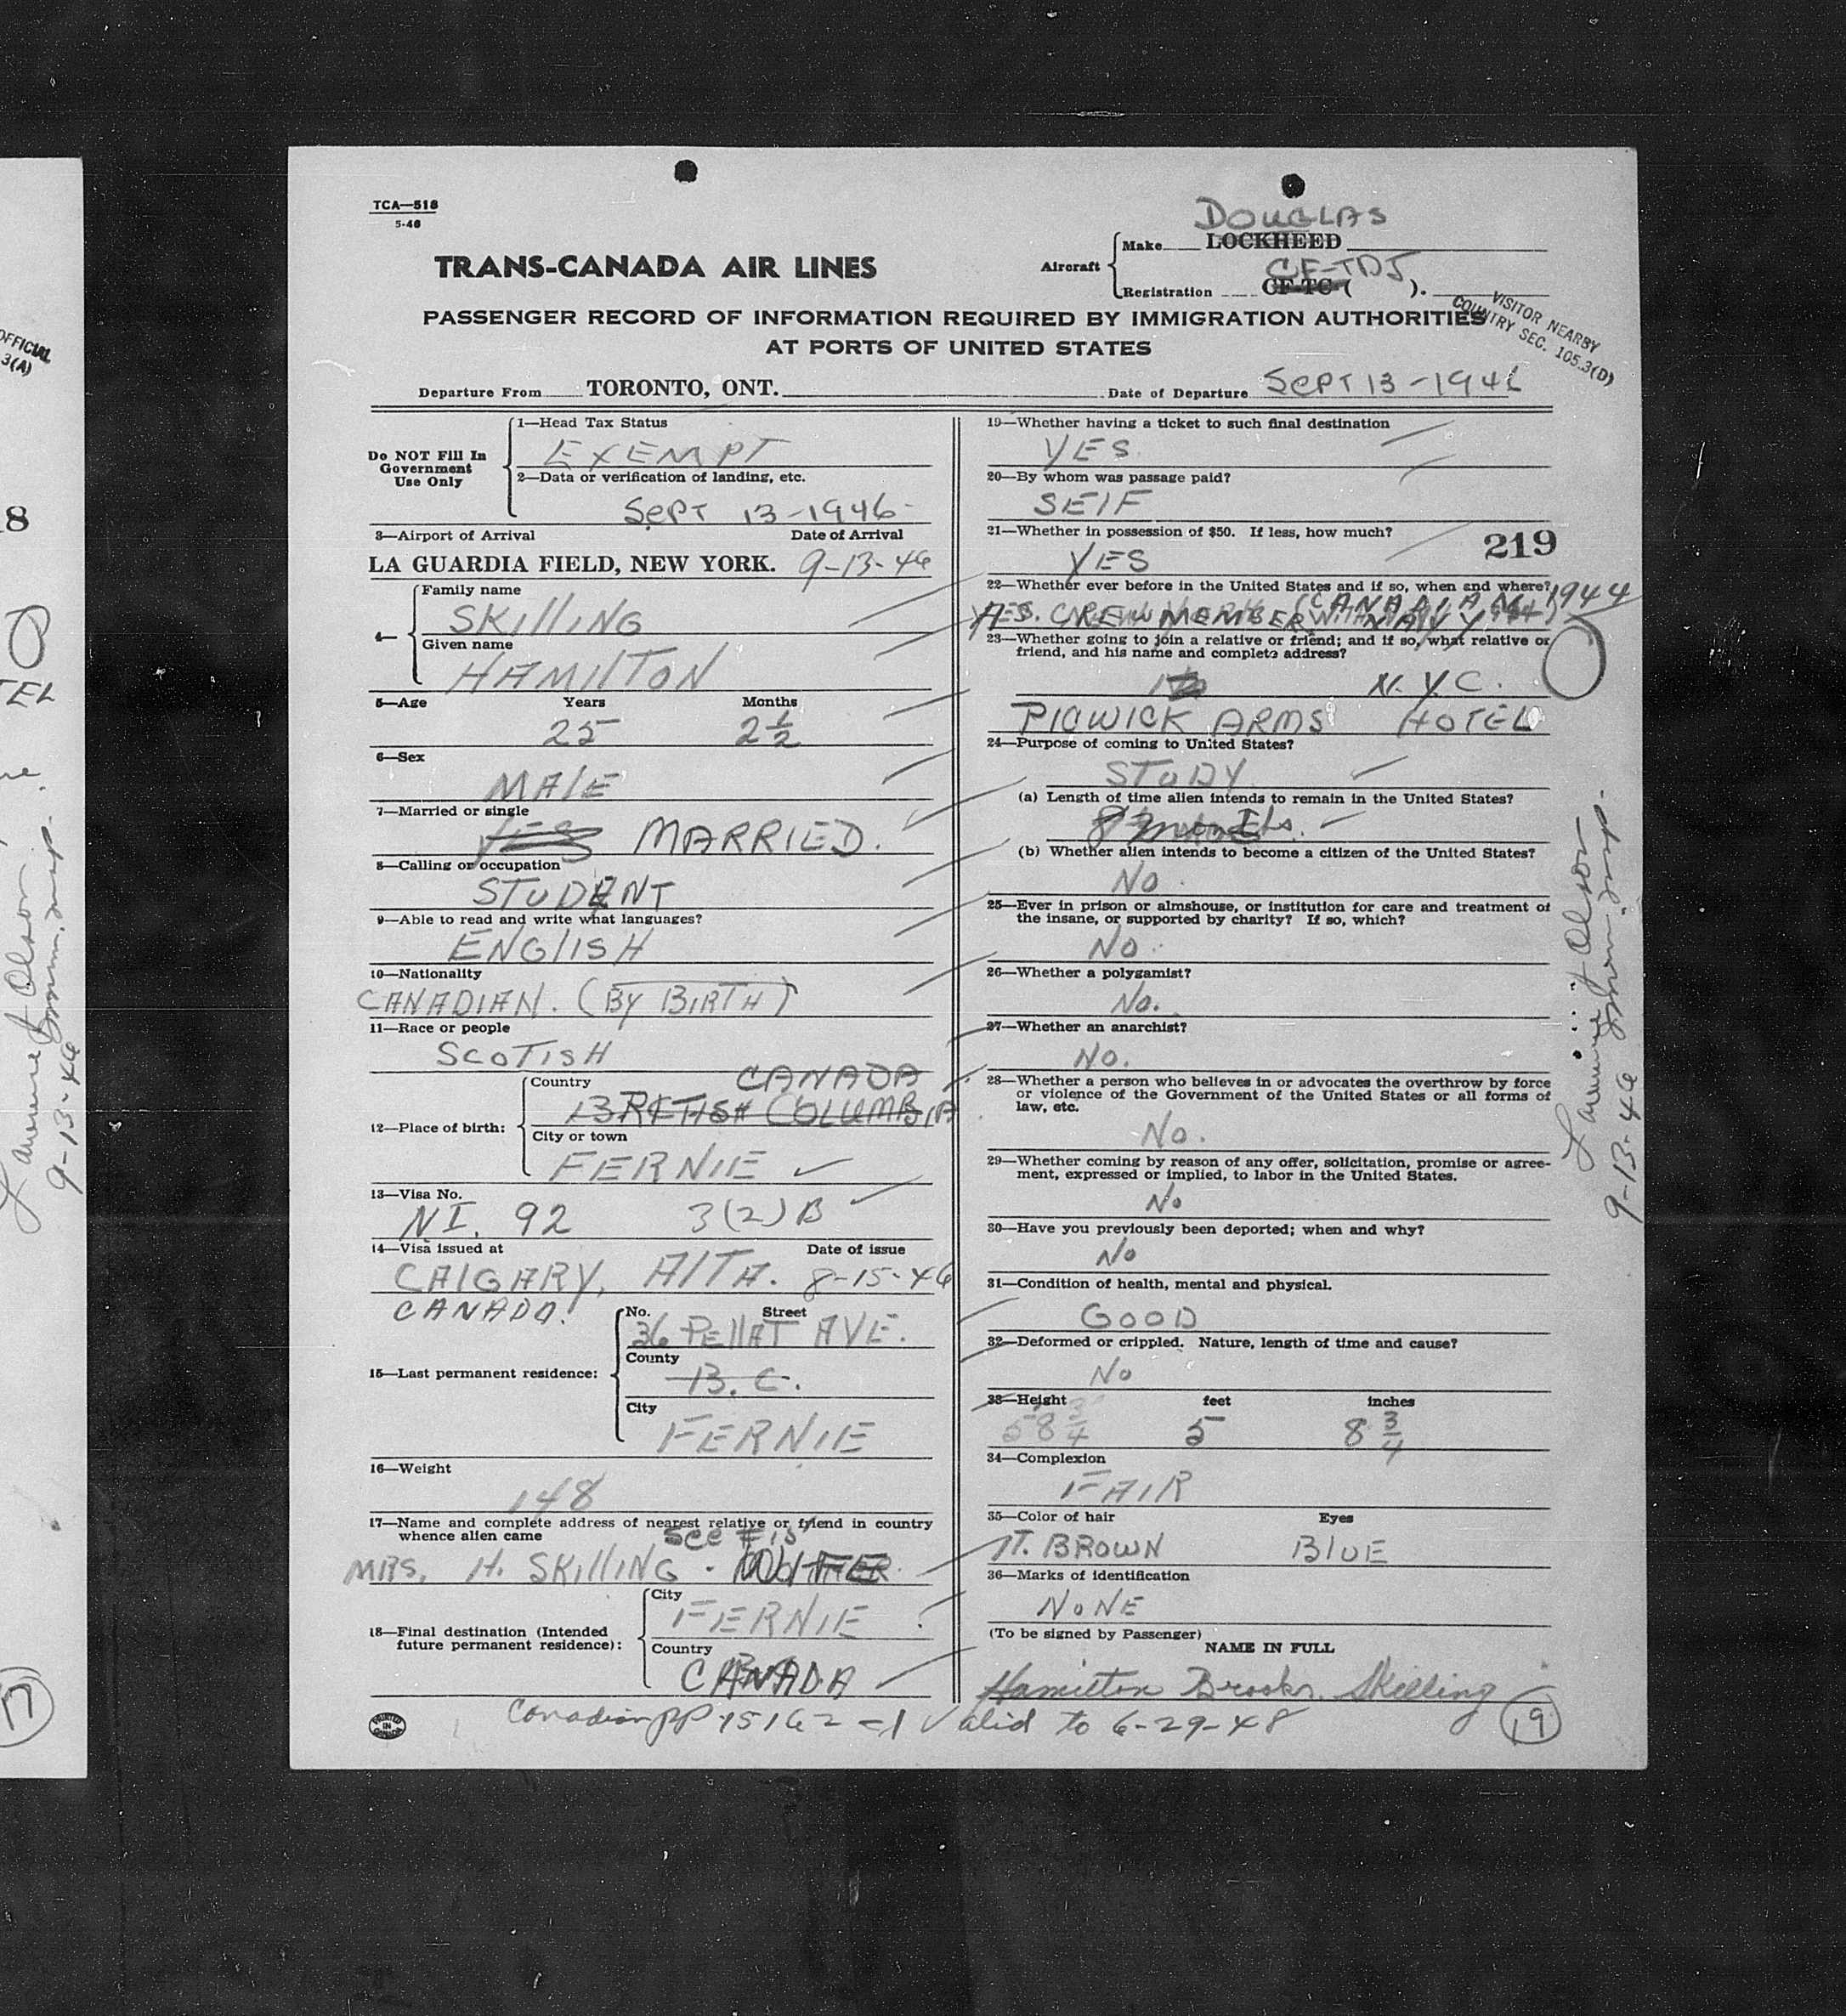 TCA—518
5-46
DOUGLAS
Make LOCKHEED
TRANS-CANADA AIR LINES
Aircraft
CF-TDJ
Registration CF-TC-( ).
VISITOR NEARBY
COUNTRY SEC. 105.3(D)
PASSENGER RECORD OF INFORMATION REQUIRED BY IMMIGRATION AUTHORITIES
AT PORTS OF UNITED STATES
Departure From TORONTO, ONT. Date of Departure SEPT 13-1946
Do NOT Fill In
Government
Use Only
1—Head Tax Status
EXEMPT
2—Data or verification of landing, etc.
SEPT 13-1946-
3—Airport of Arrival Date of Arrival
LA GUARDIA FIELD, NEW YORK. 9-13-46
4—
Family name
SKIllING
Given name
HAMIlTON
5—Age Years Months
25 2½
6—Sex
MAlE
7—Married or single
YES MARRIED.
8—Calling or occupation
STUDENT
9—Able to read and write what languages?
ENGlISH
10—Nationality
CANADIAN. (BY BIRTH)
11—Race or people
SCOTISH
12—Place of birth:
Country
CANADA
BRITISH COLUMBIA
City or town
FERNIE ✓
13—Visa No.
NI. 92 3(2)B
14—Visa issued at Date of issue
CAlGARY, AlTA. 8-15-46
CANADA.
15—Last permanent residence:
No. Street
36 PEllAT AVE.
County
B.C.
City
FERNIE
16—Weight
148
17—Name and complete address of nearest relative or friend in country
whence alien came
See #15
MRS. H. SKIllING -
18—Final destination (Intended
future permanent residence):
City
FERNIE
Country
CANADA
19—Whether having a ticket to such final destination
YES
20—By whom was passage paid?
SElF
21—Whether in possession of $50. If less, how much?
219
YES
22—Whether ever before in the United States and if so, when and where?
YES. CREW MEMBER (CANADIAN NAVY) 1944
23—Whether going to join a relative or friend; and if so, what relative or
friend, and his name and complete address?
No N.Y.C.
PICWICK ARMS HOTEL
24—Purpose of coming to United States?
STUDY
(a) Length of time alien intends to remain in the United States?
8 months.
(b) Whether alien intends to become a citizen of the United States?
No.
25—Ever in prison or almshouse, or institution for care and treatment of
the insane, or supported by charity? If so, which?
No.
26—Whether a polygamist?
No.
27—Whether an anarchist?
No.
28—Whether a person who believes in or advocates the overthrow by force
or violence of the Government of the United States or all forms of
law, etc.
No.
29—Whether coming by reason of any offer, solicitation, promise or agree-
ment, expressed or implied, to labor in the United States.
No
30—Have you previously been deported; when and why?
No
31—Condition of health, mental and physical.
GOOD
32—Deformed or crippled. Nature, length of time and cause?
No
33—Height feet inches
5 8¾ 5 8¾
34—Complexion
FAIR
35—Color of hair Eyes
lT. BROWN BlUE
36—Marks of identification
NONE
(To be signed by Passenger)
NAME IN FULL
Hamilton Brooks Skilling
19
PRINTED
IN
CANADA
Canadian PP 15162 Valid to 6-29-48
Lawrence J Olson
Imm. Insp.
9-13-46
OFFICIAL
3(A)
8
TEL
Lawrence J Olson
Imm. Insp.
9-13-46
17